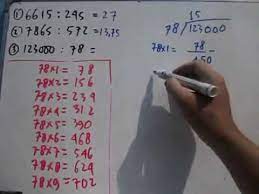 ① 6615 : 245 = 27
② 7865 : 572 = 13,75
③ 123000 : 78 =
78x1 = 78
78x2 = 156
78x3 = 234
78x4 = 312
78x5 = 390
78x6 = 468
78x7 = 546
78x8 = 624
78x9 = 702
15
78/123000
78x1 = 78 -
450